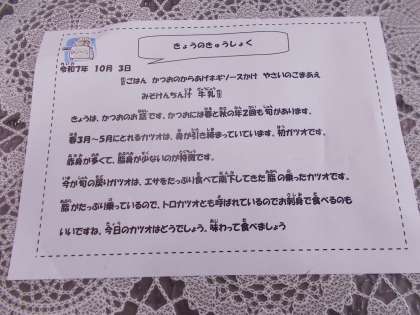 きょうのきゅうしょく
令和7年 10月 3日
ごはん かつおのからあげネギソースかけ やさいのごまあえ
みそけんちん汁 牛乳
きょうは、かつおのお話です。かつおには春と秋の年2回も旬があります。
春3月～5月にとれるカツオは、身が引き締まっていています。初ガツオです。
赤身が多くて、脂身が少ないのが特徴です。
今が旬の戻りガツオは、エサをたっぷり食べて南下してきた脂の乗ったカツオです。
脂がたっぷり乗っているので、トロカツオとも呼ばれているのでお刺身で食べるのも
いいですね。今日のカツオはどうでしょう。味わって食べましょう